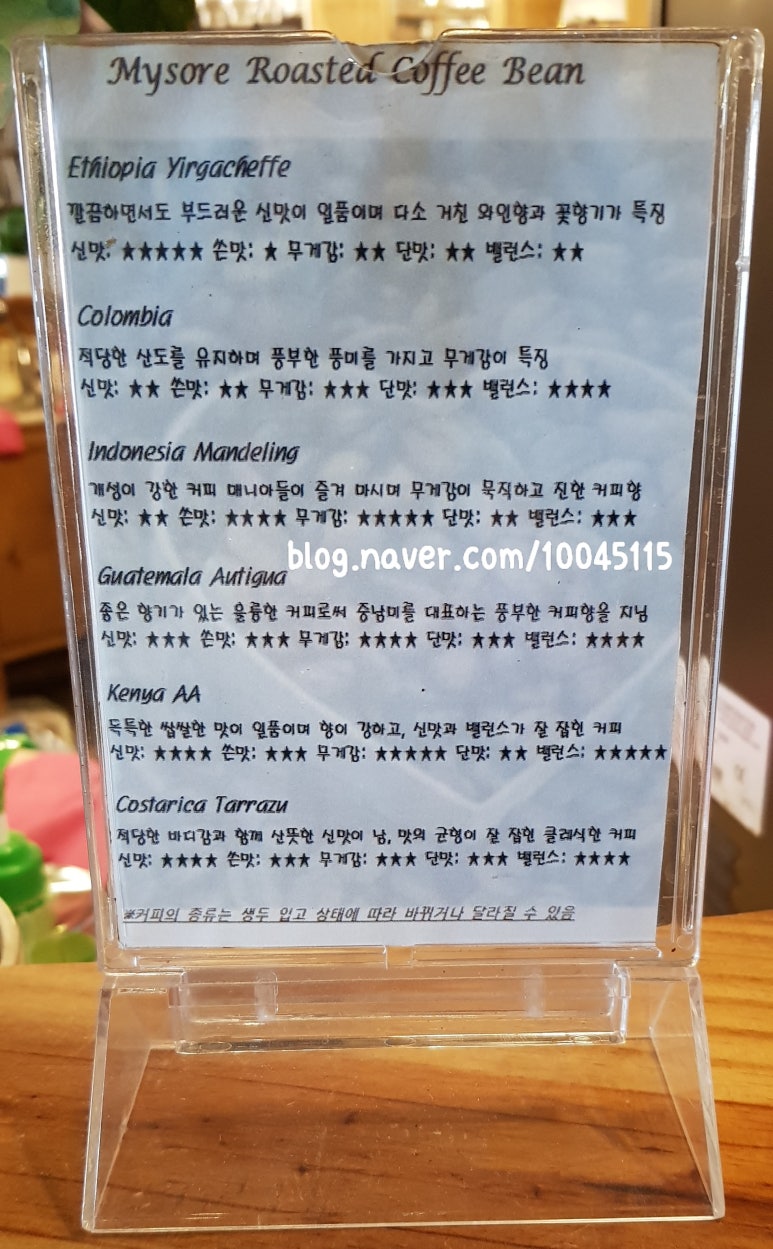 Mysore Roasted Coffee Bean
Ethiopia Yirgacheffe
깔끔하면서도 부드러운 신맛이 일품이며 다소 거친 와인향과 꽃향기가 특징
신맛: ★★★★★ 쓴맛: ★ 무게감: ★★ 단맛: ★★ 밸런스: ★★
Colombia
적당한 산도를 유지하며 풍부한 풍미를 가지고 무게감이 특징
신맛: ★★ 쓴맛: ★★ 무게감: ★★★ 단맛: ★★★ 밸런스: ★★★★
Indonesia Mandeling
개성이 강한 커피 매니아들이 즐겨 마시며 무게감이 묵직하고 진한 커피향
신맛: ★★ 쓴맛: ★★★★ 무게감: ★★★★★ 단맛: ★★ 밸런스: ★★★
blog.naver.com/10045115
Guatemala Autigua
좋은 향기가 있는 훌륭한 커피로써 중남미를 대표하는 풍부한 커피향을 지님
신맛: ★★★ 쓴맛: ★★★ 무게감: ★★★★ 단맛: ★★★ 밸런스: ★★★★
Kenya AA
독특한 쌉쌀한 맛이 일품이며 향이 강하고, 신맛과 밸런스가 잘 잡힌 커피
신맛: ★★★★ 쓴맛: ★★★ 무게감: ★★★★★ 단맛: ★★ 밸런스: ★★★★★
Costarica Tarrazu
적당한 바디감과 함께 산뜻한 신맛이 남, 맛의 균형이 잘 잡힌 클래식한 커피
신맛: ★★★★ 쓴맛: ★★★ 무게감: ★★★ 단맛: ★★★ 밸런스: ★★★★
※커피의 종류는 생두 입고 상태에 따라 바뀌거나 달라질 수 있음